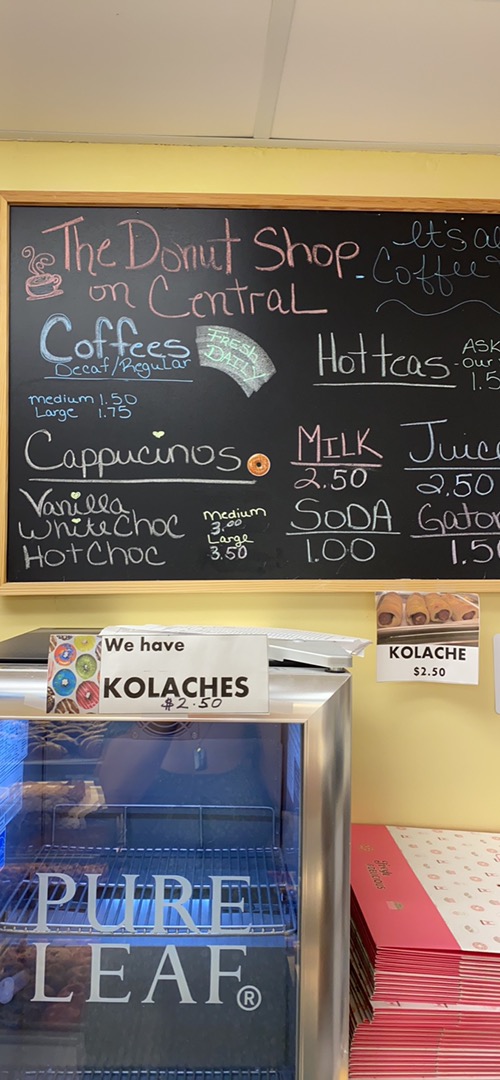 The Donut Shop
on Central
It's a
Coffee
Coffees
Decaf/Regular
FRESH
DAILY
medium 1.50
Large 1.75
Hot teas
ASK
our
1.5
Cappucinos
Vanilla
White Choc
Hot Choc
medium
3.00
Large
3.50
MILK
2.50
Juice
2.50
SODA
1.00
Gator
1.5
KOLACHE
$2.50
We have
KOLACHES
$2.50
PURE
LEAF®